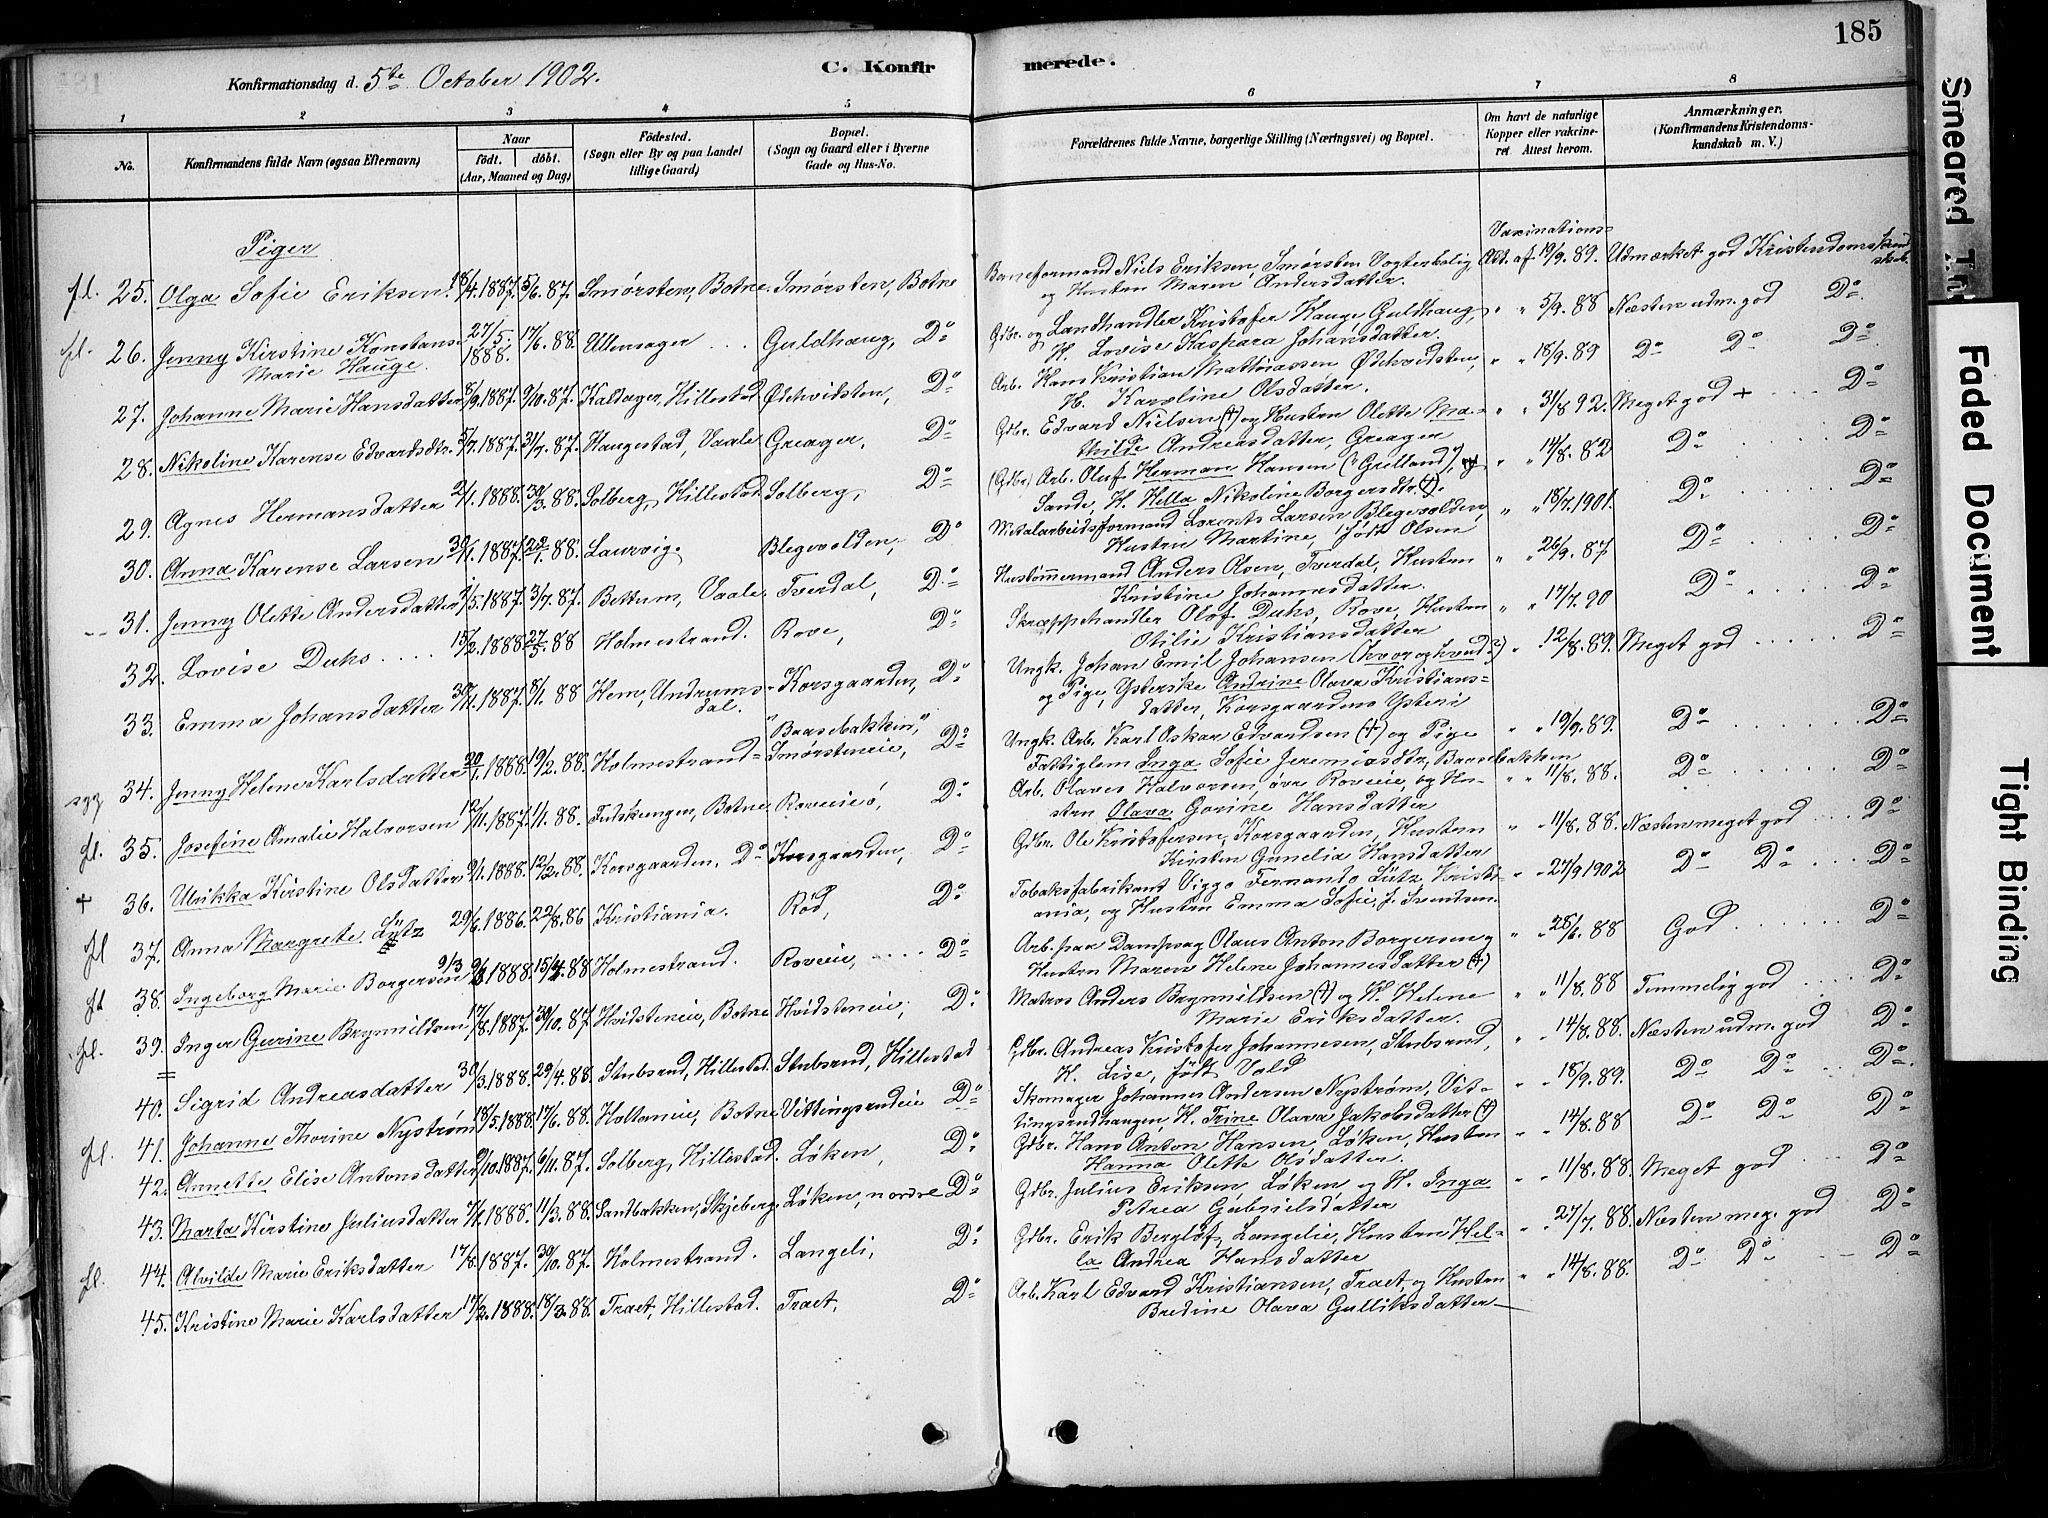 185
Konfirmationsdag d. 5te October 1902.
C. Konfirmerede.
1 2 3 4 5 6 7 8
No.
Konfirmandens fulde Navn (ogsaa Efternavn)
Naar
født. døbt.
(Aar, Maaned og Dag)
Fødested.
(Sogn eller By og paa Landet
tillige Gaard)
Bopæl.
(Sogn og Gaard eller i Byerne
Gade og Hus-No.
Forældrenes fulde Navne, borgerlige Stilling (Næringsvei) og Bopæl.
Om havt de naturlige
Kopper eller vakcine-
ret Attest herom.
Anmærkninger.
(Konfirmandens Kristendoms-
kundskab m. V.)
Piger
Vaxinations-
fl. 25. Olga Sofie Eriksen 18/4.1887. 5/6.87. Smørsten, Botne. Smørsten, Botne Baneformand Niels Eriksen, Smørsten Vogterbolig Att. af 19/9.89. Udmærket god Kristendomskund
og Hustru Maren Andersdatter. skab.
fl. 26. Jenny Kirstine Konstanse 27/5. 1888. 17/6.88. Ullensager ... Guldhaug, Do Gdbr. og Landhandler Kristofer Hauge Guldhaug, " " 5/9.88 Næsten udm. god Do
Marie Hauge. H. Lovise Kaspara Johansdatter.
27. Johanne Marie Hansdatter 8/9.1887. 9/10.87. Kaldager, Hillestad Ødehvidsten, Do Arb. Hans Kristian Mathiassen Ødehvidsten, " " 18/9.89 Do Do Do
H. Karoline Olsdatter.
28. Nikoline Karense Edvardsdtr. 5/7.1887. 31/7.87. Haugestad, Vaale Greager, Do Gdbr. Edvard Nielsen (+) og Hustru Olette Ma- " " 31/8.92. Meget god + ... Do
thilde Andreasdatter, Greager
29. Agnes Hermansdatter 2/1.1888. 30/3.88. Solberg, Hillestad Solberg, Do (Gdbr.) Arb. Oluf Herman Hansen ("Grilland"), " " 14/8.82 Do ... Do
Sande, H. Hella Nikoline Borgersdtr. (+).
30. Anna Karense Larsen 30/11.1887. 22/1.88. Laurvig. Blegevolden, Do Metalarbeidsformand Lorents Larsen Blegevolden, " " 18/7.1901. Do ... Do
Hustru Martine, født Olsen
31. Jenny Olette Andersdatter 2/5.1887. 3/7.87. Bettum, Vaale. Tverdal, Do Hustømmermand Anders Olsen, Tverdal, Hustru " " 26/9.87 Do ... Do
Kristine Johannesdatter.
32. Lovise Duhs .... 15/2.1888 27/5.88 Holmestrand. Rove, Do Skræpphandler Olof Duhs, Rove, Hustru " " 17/7.90 Do ... Do
Otilie Kristiansdatter
33. Emma Johansdatter 30/11.1887. 8/1.88 Hem, Undrums- Korsgaarden, Do Ungk. Johan Emil Johansen (hvor og hvad?) " 12/8.89. Meget god ... Do
dal. og Pige, Ysterske Andrine Olava Kristians-
datter, Korsgaardens Ysteri
34. Jenny Helene Karlsdatter 20/1.1888. 19/2.88. Holmestrand "Baasebakken", Smørsteneie, Do Ungk. Arb. Karl Oskar Edvardsen (+) og Pige " " 19/9.89. Do ... Do
Fattiglem Inga Sofie Jeremiasdtr, Baasebakken
fl. 35. Josefine Amalie Halvorsen 12/11.1887. 1/1.88. Fuskengen, Botne Roveeie, Do Arb. Olaves Halvorsen, øvre Roveeie, og Hu- " " 11/8.88. Do ... Do
stru Olava Gorine Hansdatter
+ 36. Ulrikka Kirstine Olsdatter 9/1.1888. 12/2.88. Korsgaarden, Do Korsgaarden, Do Gdbr. Ole Kristofersen, Korsgaarden, Hustru " " 11/8.88. Næsten meget god ... Do
Kirsten Gunelia Hansdatter
fl 37. Anna Margrete Lütz 29/6.1886. 22/8.86 Kristiania. Rød, Do Tobaksfabrikant Viggo Fernando Lütz, Kristi- " " 27/9 1902 Do Do ... Do
ania, og Hustru Emma Sofie, f. Svendsen.
fl 38. Ingeborg Marie Borgersen 9/3 1888. 15/4.88 Holmestrand. Roveeie, ... Do Arb. paa Dampsag Olaus Anton Borgersen og " " 28/6.88 God ... Do
Hustru Maren Helene Johannesdatter (+)
fl. 39. Inger Gurine Brynnildsen 17/8.1887. 30/10.87 Hvidsteneie, Botne Hvidsteneie, Do Matros Anders Brynnildsen (+) og H. Helene " " 11/8.88 Temmelig god ... Do
Marie Eriksdatter.
40. Sigrid Andreasdatter 30/3.1888. 29/4.88. Stubsrud, Hillestad. Stubsrud, Hillestad Gdbr. Andreas Kristofer Johannesen, Stubsrud, " " 14/8.88. Næsten udm. god Do
H. Lise, født Vold
fl. 41. Johanne Thorine Nystrøm 18/5.1888. 17/6.88. Holtaneie, Botne Vittingsrudeie Do Skomager Johannes Andersen Nystrøm, Vit- " " 18/9.89. Do Do ... Do
tingsrudhaugen, H. Trine Olava Jakobsdatter (+)
42. Annette Elise Antonsdatter 9/10.1887. 6/11.87. Solberg, Hillestad. Løken, Do Gdbr. Hans Anton Hansen, Løken, Hustru " " 14/8.88 Do Do Do
Hanna Olette Olsdatter.
43. Marta Kirstine Juliusdatter 7/1.1888. 11/3.88. Sandbakken, Skjeberg. Løken, nordre Do Gdbr. Julius Eriksen, Løken og H. Inga " " 11/8.88. Meget god ... Do
Petrea Gabrielsdatter
fl. 44. Alvilde Marie Eriksdatter 17/8.1887. 30/10.87. Holmestrand. Langeli, Do Gdbr. Erik Bergløf, Langelie, Hustru Hel- " " 27/7.88. Næsten meg. god Do
la Andrea Hansdatter
45. Kristine Marie Karlsdatter 17/2.1888. 18/3.88. Traet, Hillestad. Traet, Do Arb. Karl Edvard Kristiansen, Traet, og Hustru " " 14/8.88. Do Do Do
Bredine Olava Gulliksdatter
Smeared
Faded Document
Tight Binding